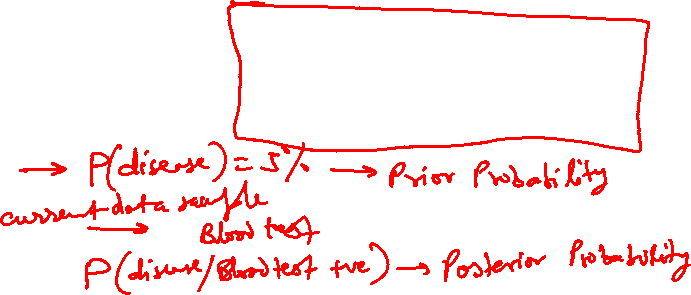 → P(disease) = 5% → Prior Probability
current data sample
→ Blood test
P(disease/Blood test +ve) → Posterior Probability